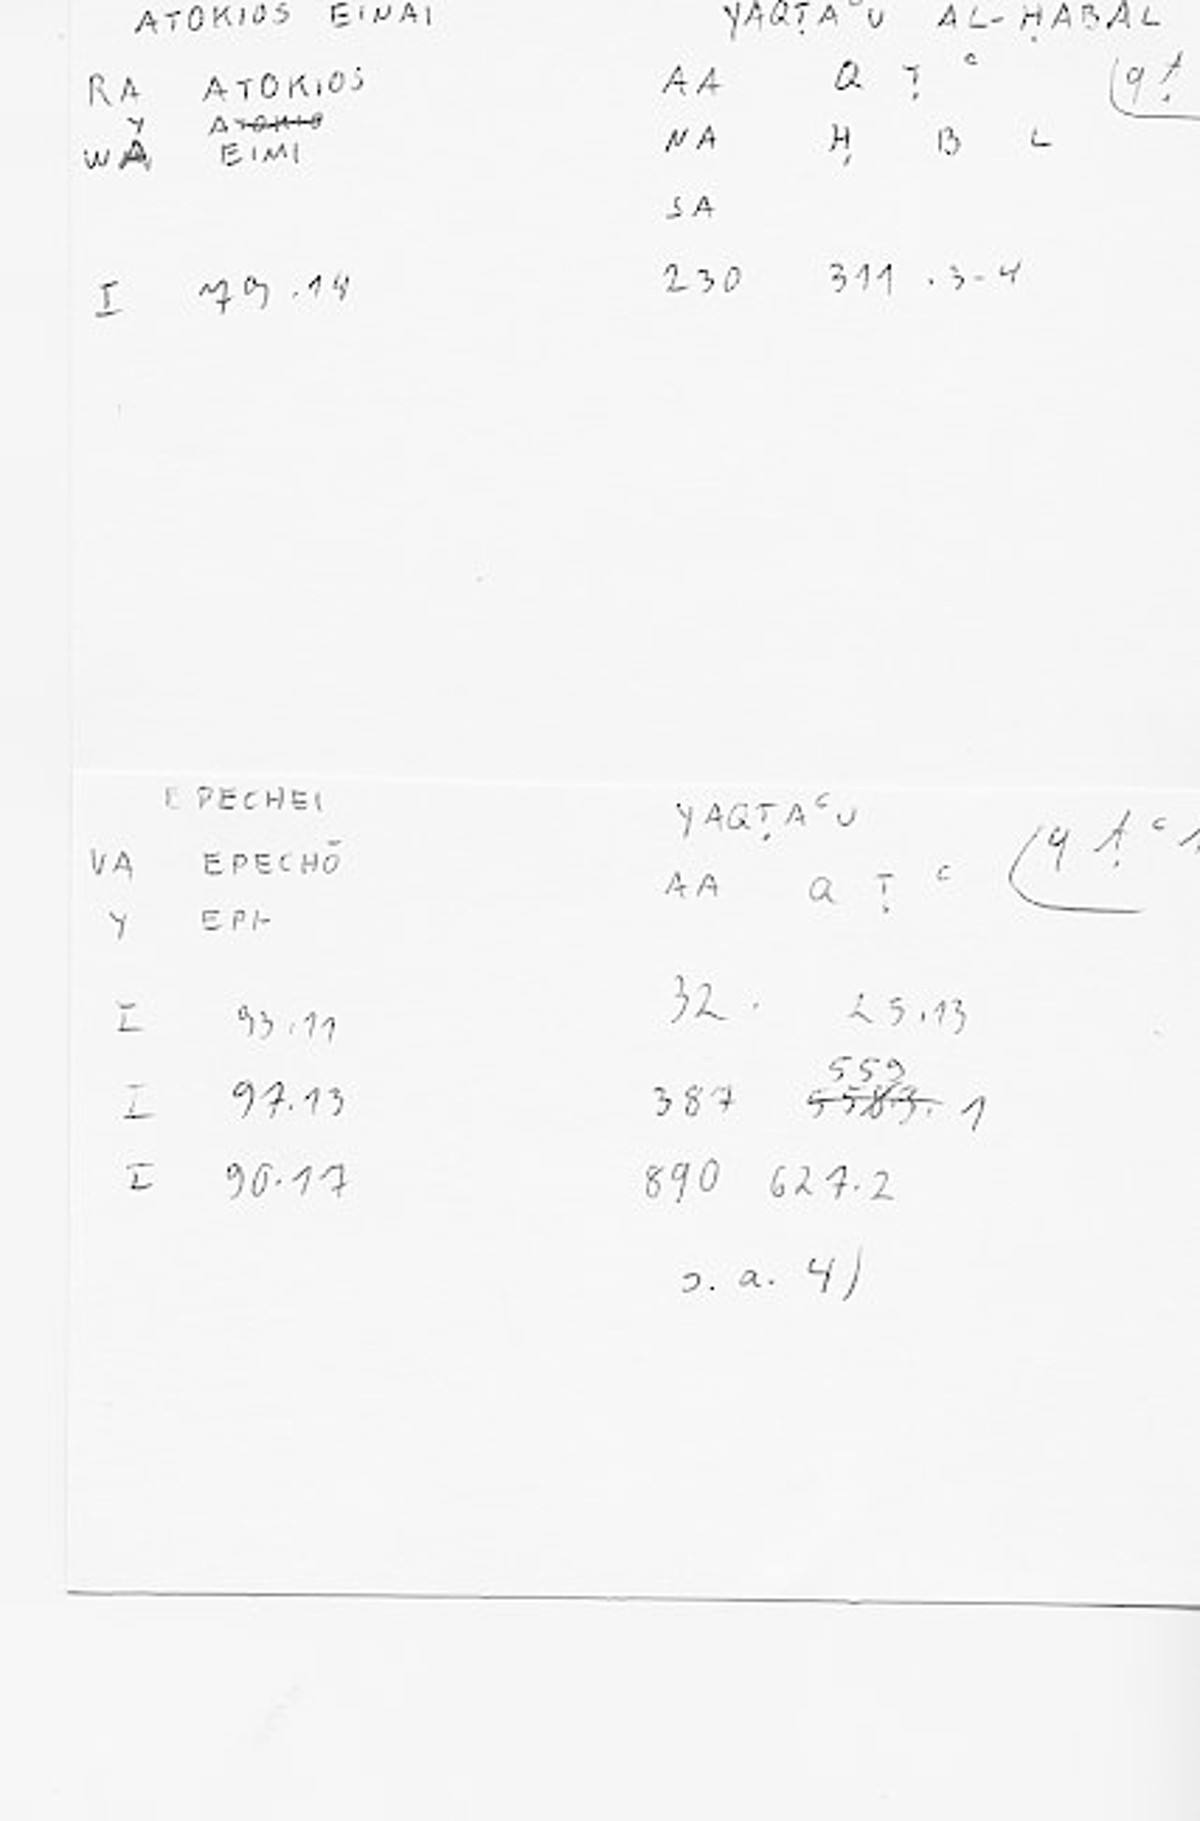 ATOKIOS EINAI YAQṬAᶜU AL-ḤABAL
RA ATOKIOS AA Q Ṭ ᶜ (qṭ
Y ATOKIO
WA EIMI NA Ḥ B L
SA
I 79.14 230 311.3-4
EPECHEI YAQṬAᶜU
VA EPECHŌ AA Q Ṭ ᶜ (qṭᶜ1
Y EPI-
I 93.11 32. 25.13
559
I 97.13 387 1
I 90.17 890 627.2
s. a. 4)